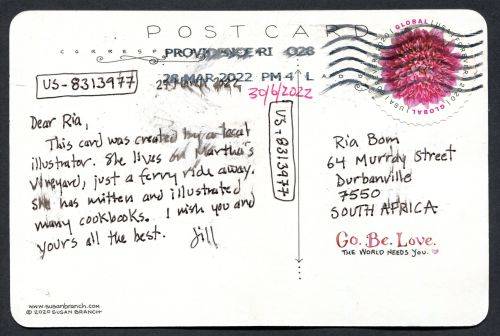 POSTCARD
CORRESP
PROVIDENCE RI 028
28 MAR 2022 PM 4 L
30/6/2022
US-8313977
US-8313977
GLOBAL USA FOREVER 2020
Dear Ria,
This card was created by a local
illustrator. She lives on Martha's
Vineyard, just a ferry ride away.
She has written and illustrated
many cookbooks. I wish you and
yours all the best. Jill
Ria Bom
64 Murray Street
Durbanville
7550
SOUTH AFRICA
Go. Be. Love.
THE WORLD NEEDS YOU.
www.susanbranch.com
© 2020 SUSAN BRANCH